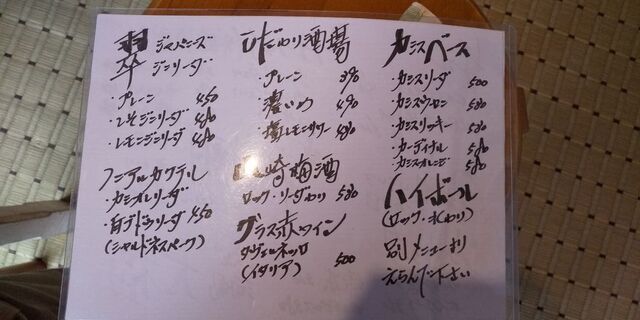 翠 ジャパニーズ
ジンソーダ
・プレーン 450
・しそジンソーダ 480
・レモンジンソーダ 480
ノンアルカクテル
・カシオレソーダ
・白ブドウソーダ 450
(シャルドネスパーク)
ひだわり酒場
・プレーン 390
・濃いめ 490
・塩レモンサワー 480
山崎梅酒
ロック・ソーダわり 580
グラス赤ワイン
タヴェルネッロ
(イタリア) 500
カシスベース
・カシスソーダ 500
・カシスウーロン 580
・カシスリッキー 580
・カーディナル 580
・カシスオレンジ 580
ハイボール
(ロック・水わり)
別メニューより
えらんで下さい